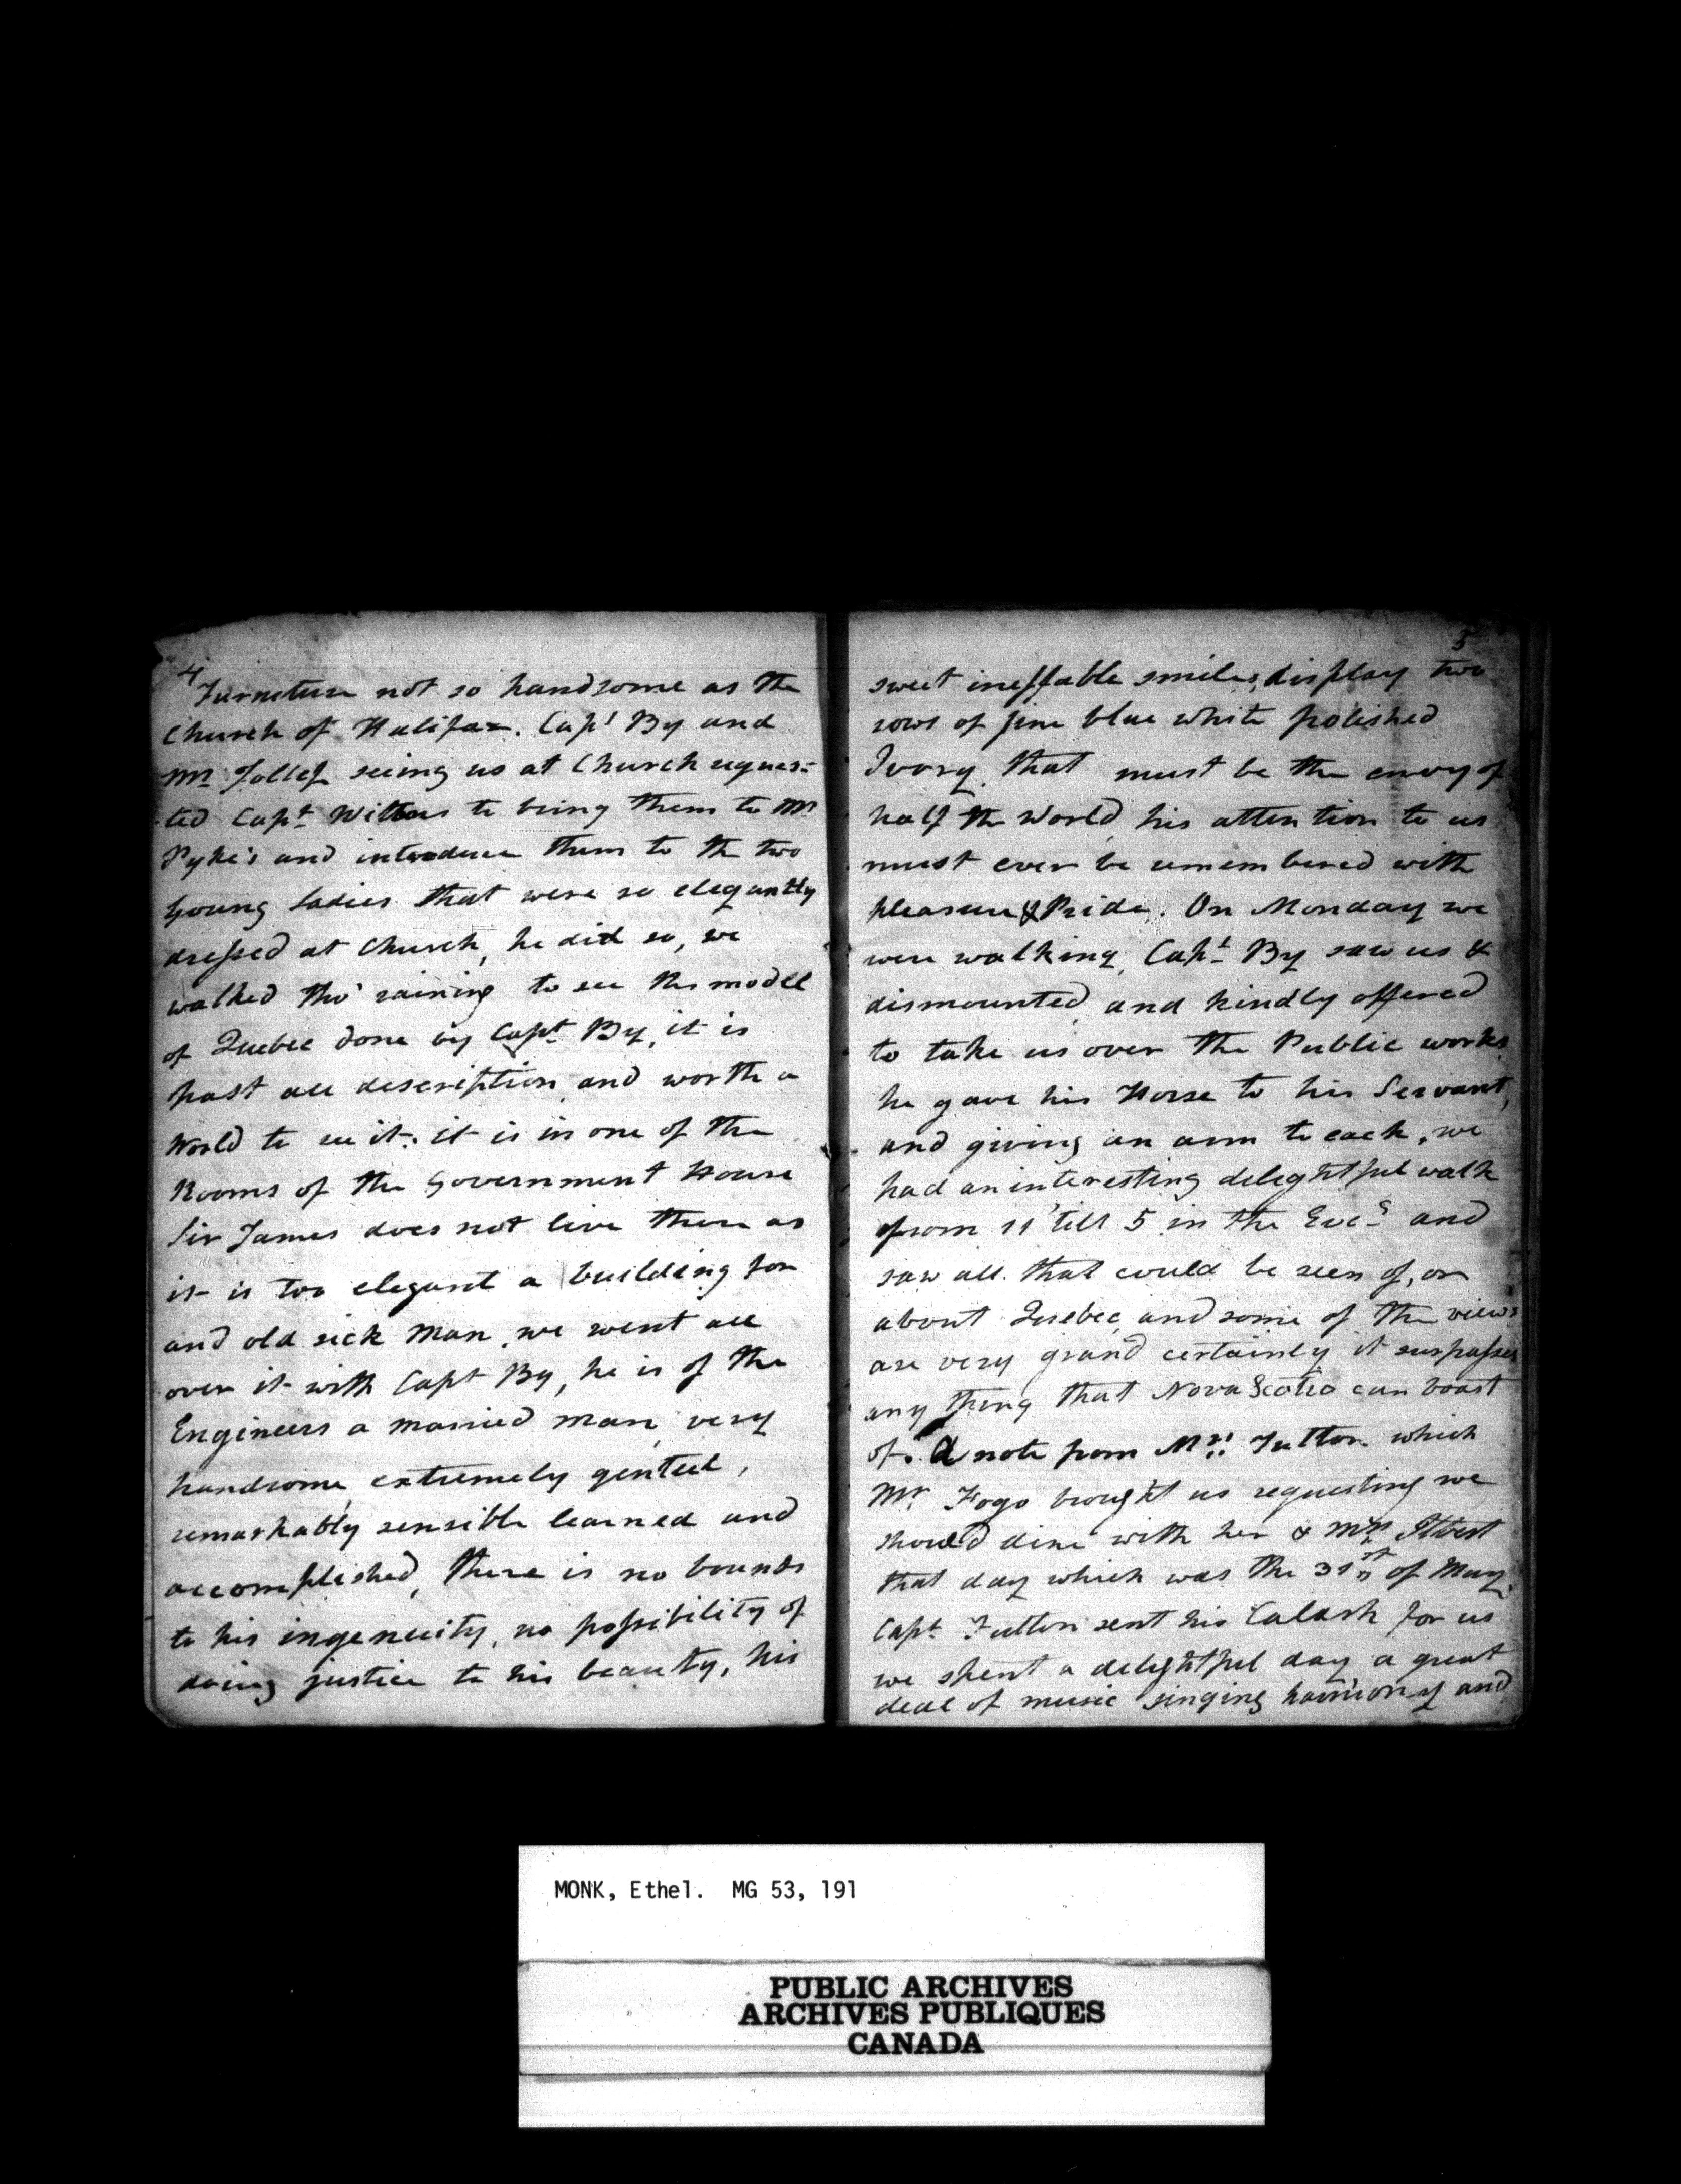 4
Furniture not so handsome as the
Church of Halifax. Capt By and
Mr Jollef seeing us at Church reques-
ted Capt Witters to bring them to Mr
Pyke's and introduce them to the two
young ladies that were so elegantly
dressed at Church, he did so, we
walked tho' raining to see the modell
of Quebec done by Capt By, it is
past all description and worth a
World to see it. it is in one of the
Rooms of the Government House
Sir James does not live there as
it is too elegant a building for
and old sick man, we went all
over it with Capt By, he is of the
Engineers a married man, very
handsome, extremely genteel,
remarkably sensible learned and
accomplished, there is no bounds
to his ingenuity, no possibility of
doing justice to his beauty, his
5
sweet ineffable smiles, display two
rows of fine blue white polished
Ivory, that must be the envy of
half the World, his attention to us
must ever be remembered with
pleasure & Pride. On Monday we
were walking, Capt By saw us &
dismounted, and kindly offered
to take us over the Public works,
he gave his Horse to his Servant,
and giving an arm to each, we
had an interesting delightful walk
from 11 'till 5 in the Eveg and
saw all that could be seen of, or
about Quebec, and some of the views
are very grand certainly it surpasses
any thing that Nova Scotia can boast
of. A note from Mrs Fulton which
Mr Fogo brought us requesting we
should dine with her & Mrs Ilbert
that day which was the 31st of May.
Capt Fulton sent his Calash for us
we spent a delightful day, a great
deal of music singing harmony and
MONK, Ethel. MG 53, 191
PUBLIC ARCHIVES
ARCHIVES PUBLIQUES
CANADA